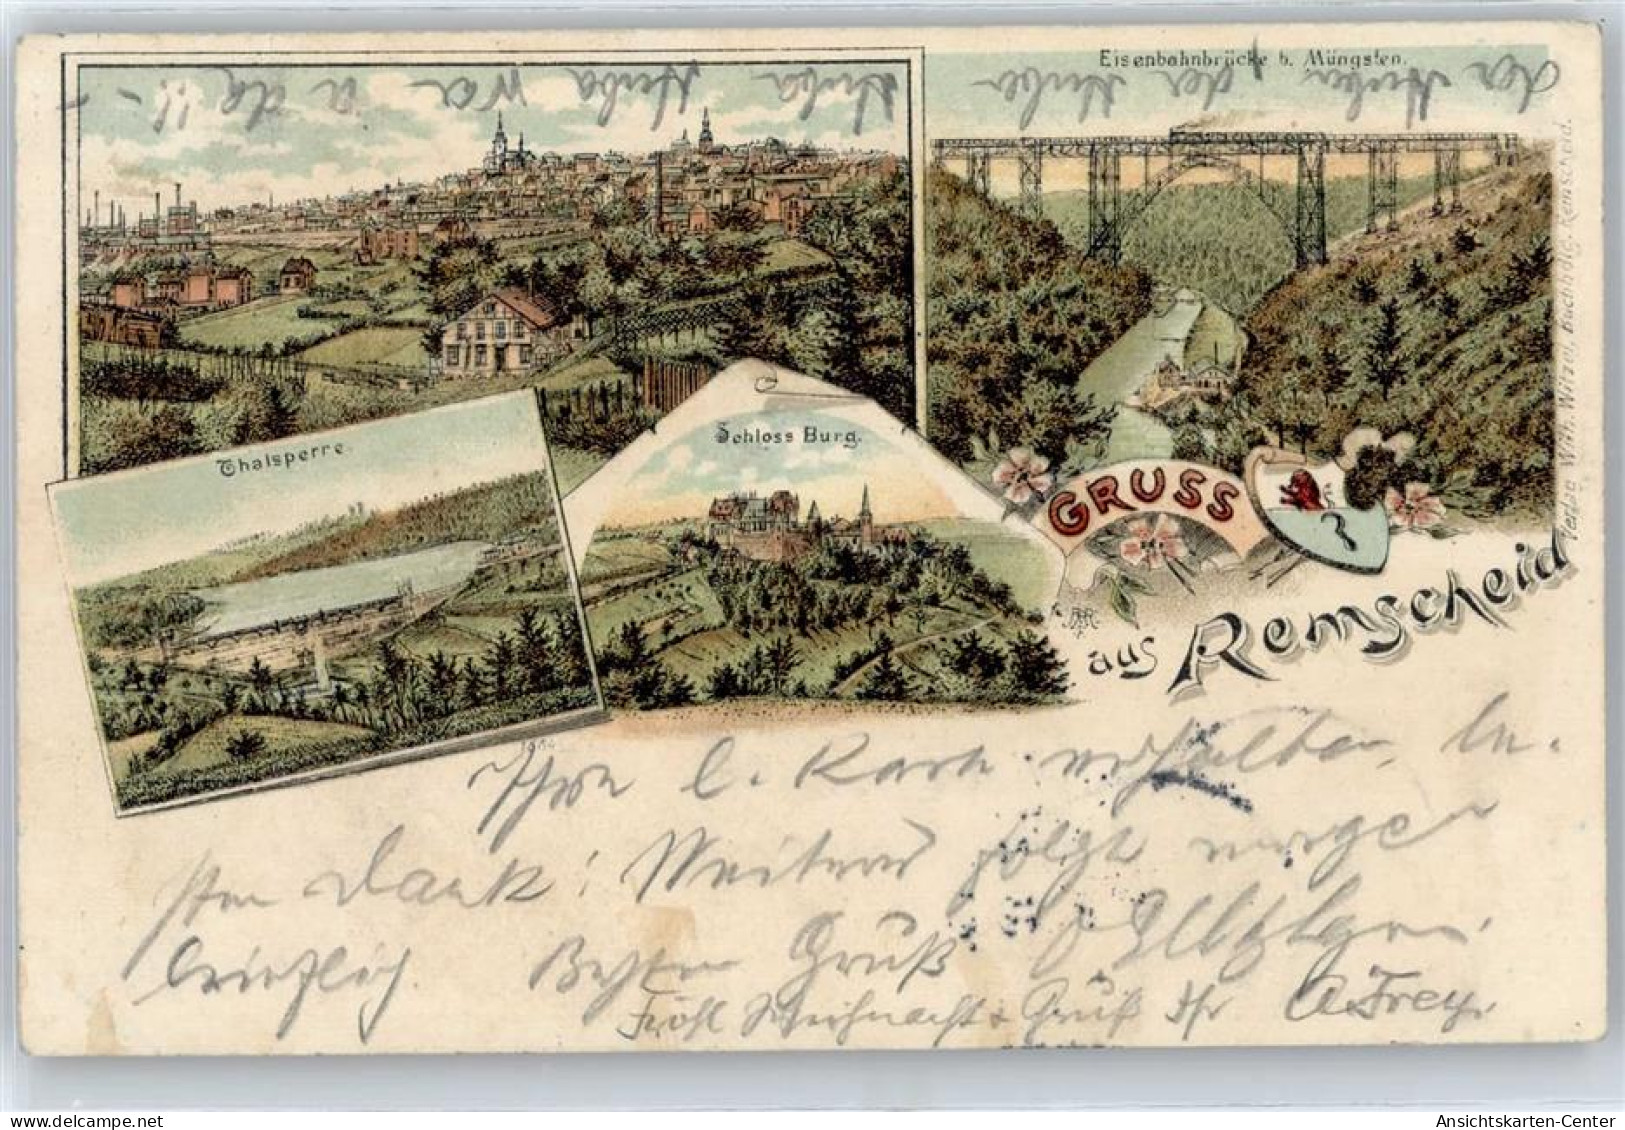 Eisenbahnbrücke b. Müngsten.
Thalsperre.
Schloss Burg.
GRUSS
aus Remscheid
Verlag Wilh. Witzel, Buchhdlg. Remscheid.
der der
wa da!!
l. Karte erhalten,
Dank! Weiteres folgt morgen
brieflich. Besten Gruß
Fröhl Weihnacht Gruß Ihr A. Frey.
Ansichtskarten-Center